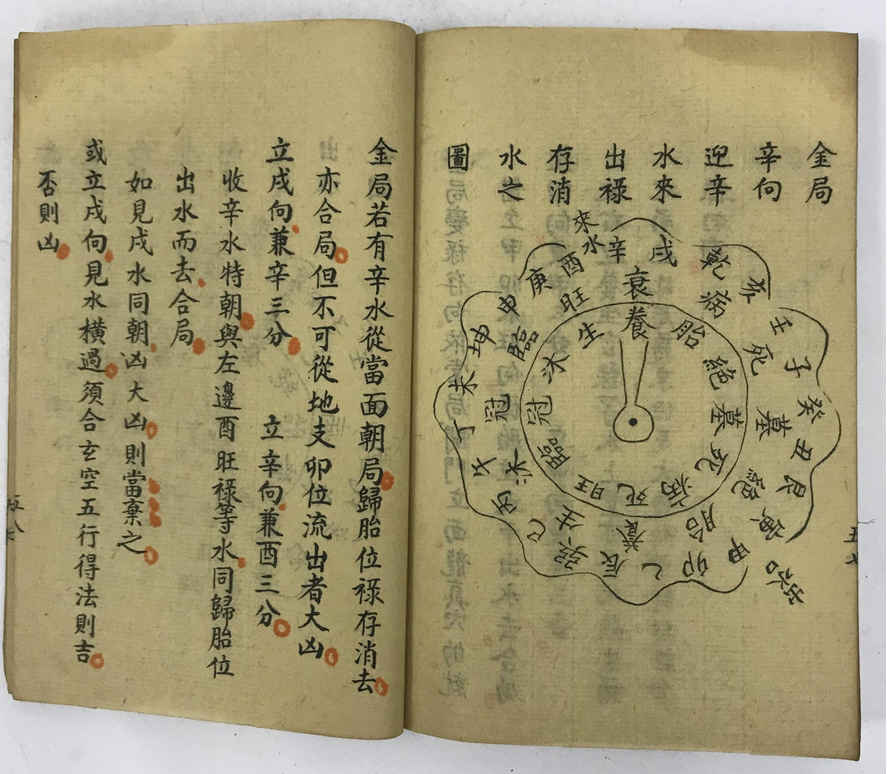 金局
辛向
迎辛
水來
出祿
存消
水之
圖
來水
辛
戌
乾
亥
壬
子
癸
丑
艮
寅
甲
卯
乙
辰
巳
丙
午
丁
未
坤
申
庚
酉
衰
病
死
墓
絕
胎
養
生
沐
冠
臨
旺
養
胎
絕
墓
死
病
死
旺
臨
冠
沐
生
五七
金局若有辛水從當面朝局歸胎位祿存消去
亦合局但不可從地支卯位流出者大凶
立戌向兼辛三分 立辛向兼酉三分
收辛水特朝與左邊酉旺祿等水同歸胎位
出水而去合局
如見戌水同朝凶大凶則當棄之
或立戌向見水橫過須合玄空五行得法則吉
否則凶